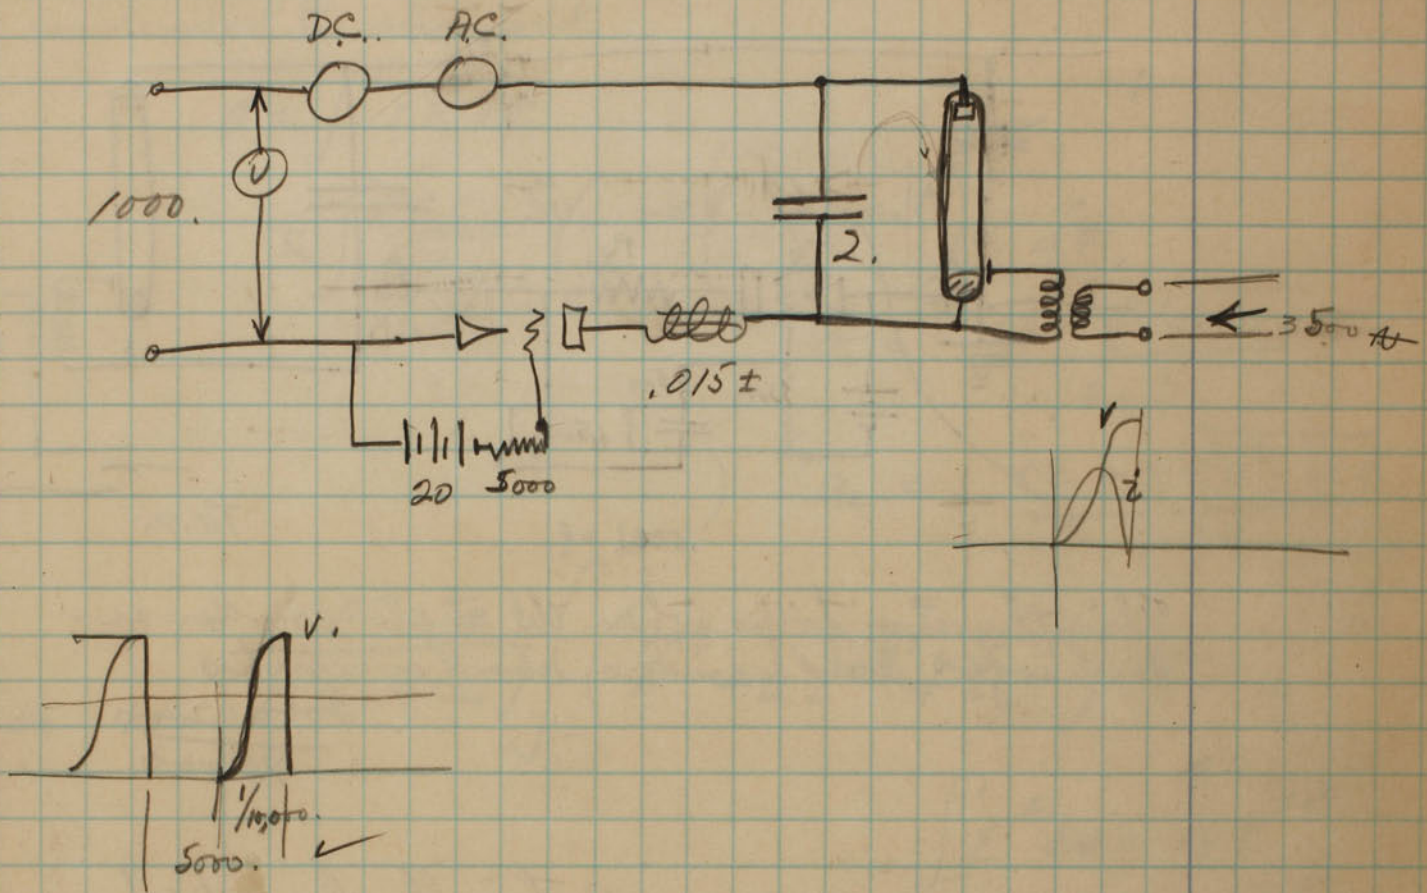 D.C. A.C.
V
1000.
2.
.015 ±
20 5000
V
i
V.
1/10,000.
5000.